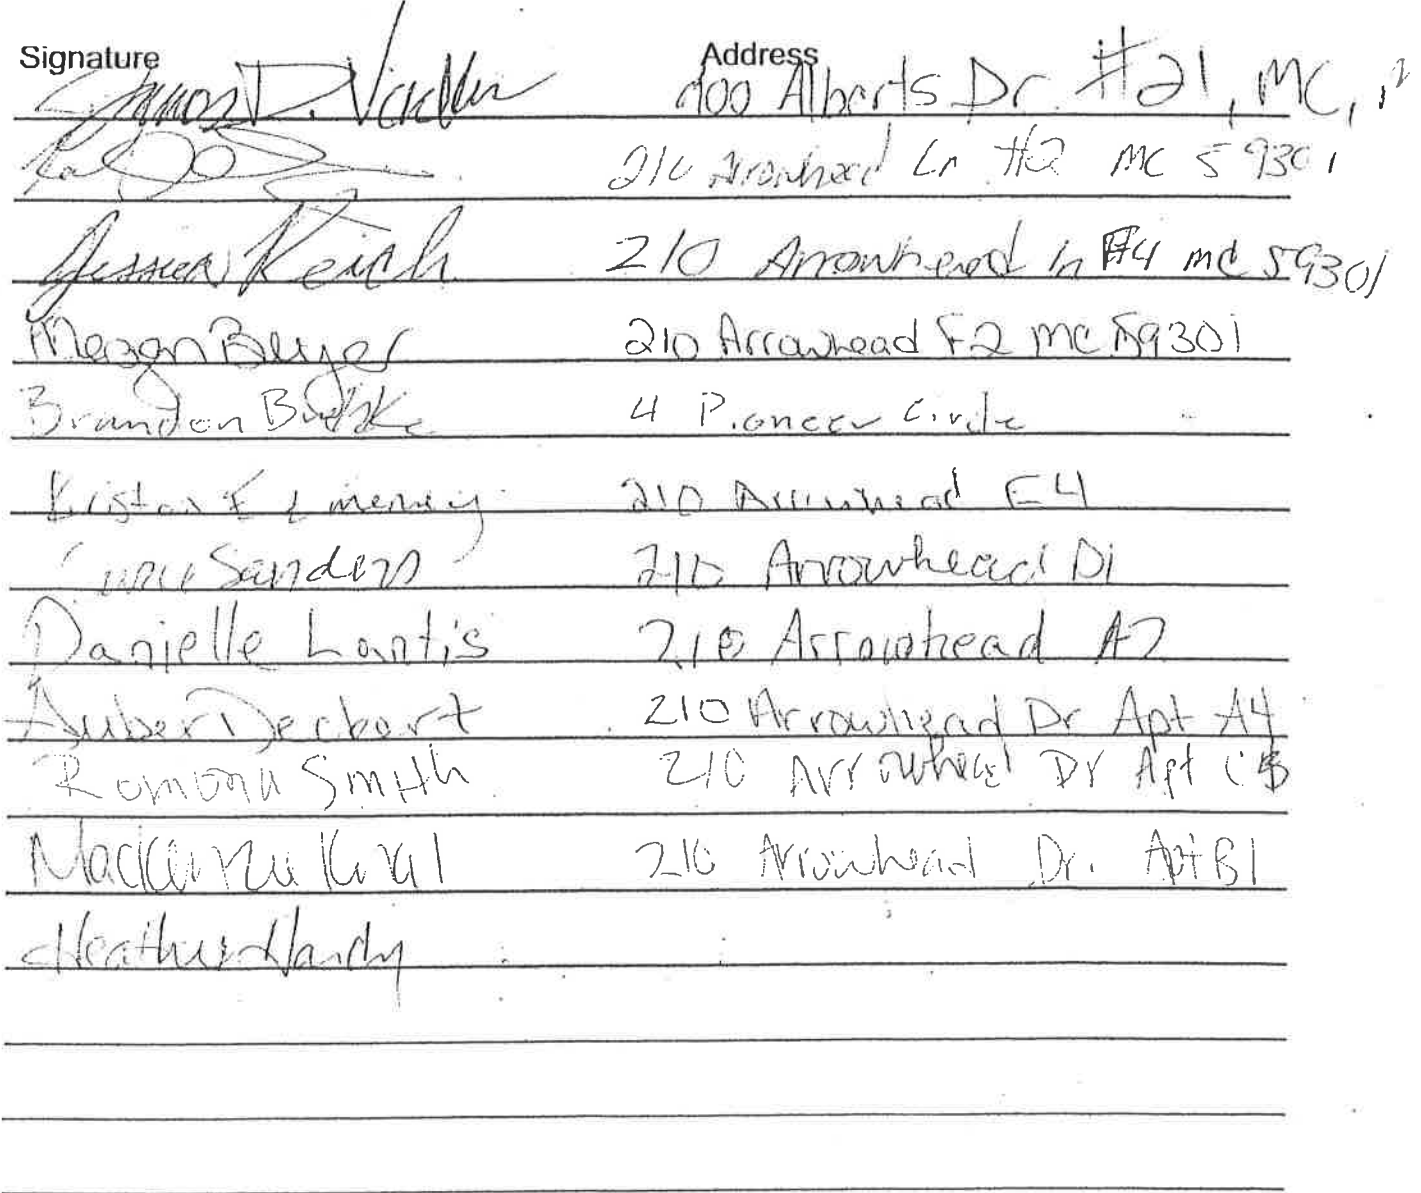 Signature Address
D. 400 Alberts Dr. #21, MC,
210 Arrowhead Ln #2 MC 59301
Jessica Reich 210 Arrowhead Ln #4 MC 59301
Megan Beyer 210 Arrowhead F2 MC 59301
Brandon 4 Pioneer Circle
210 Arrowhead E4
Sanders 210 Arrowhead D1
Danielle Lantis 210 Arrowhead A2
Auber Deckert 210 Arrowhead Dr Apt A4
Romona Smith 210 Arrowhead Dr Apt
Mackenzie 210 Arrowhead Dr. Apt B1
Heather Handy